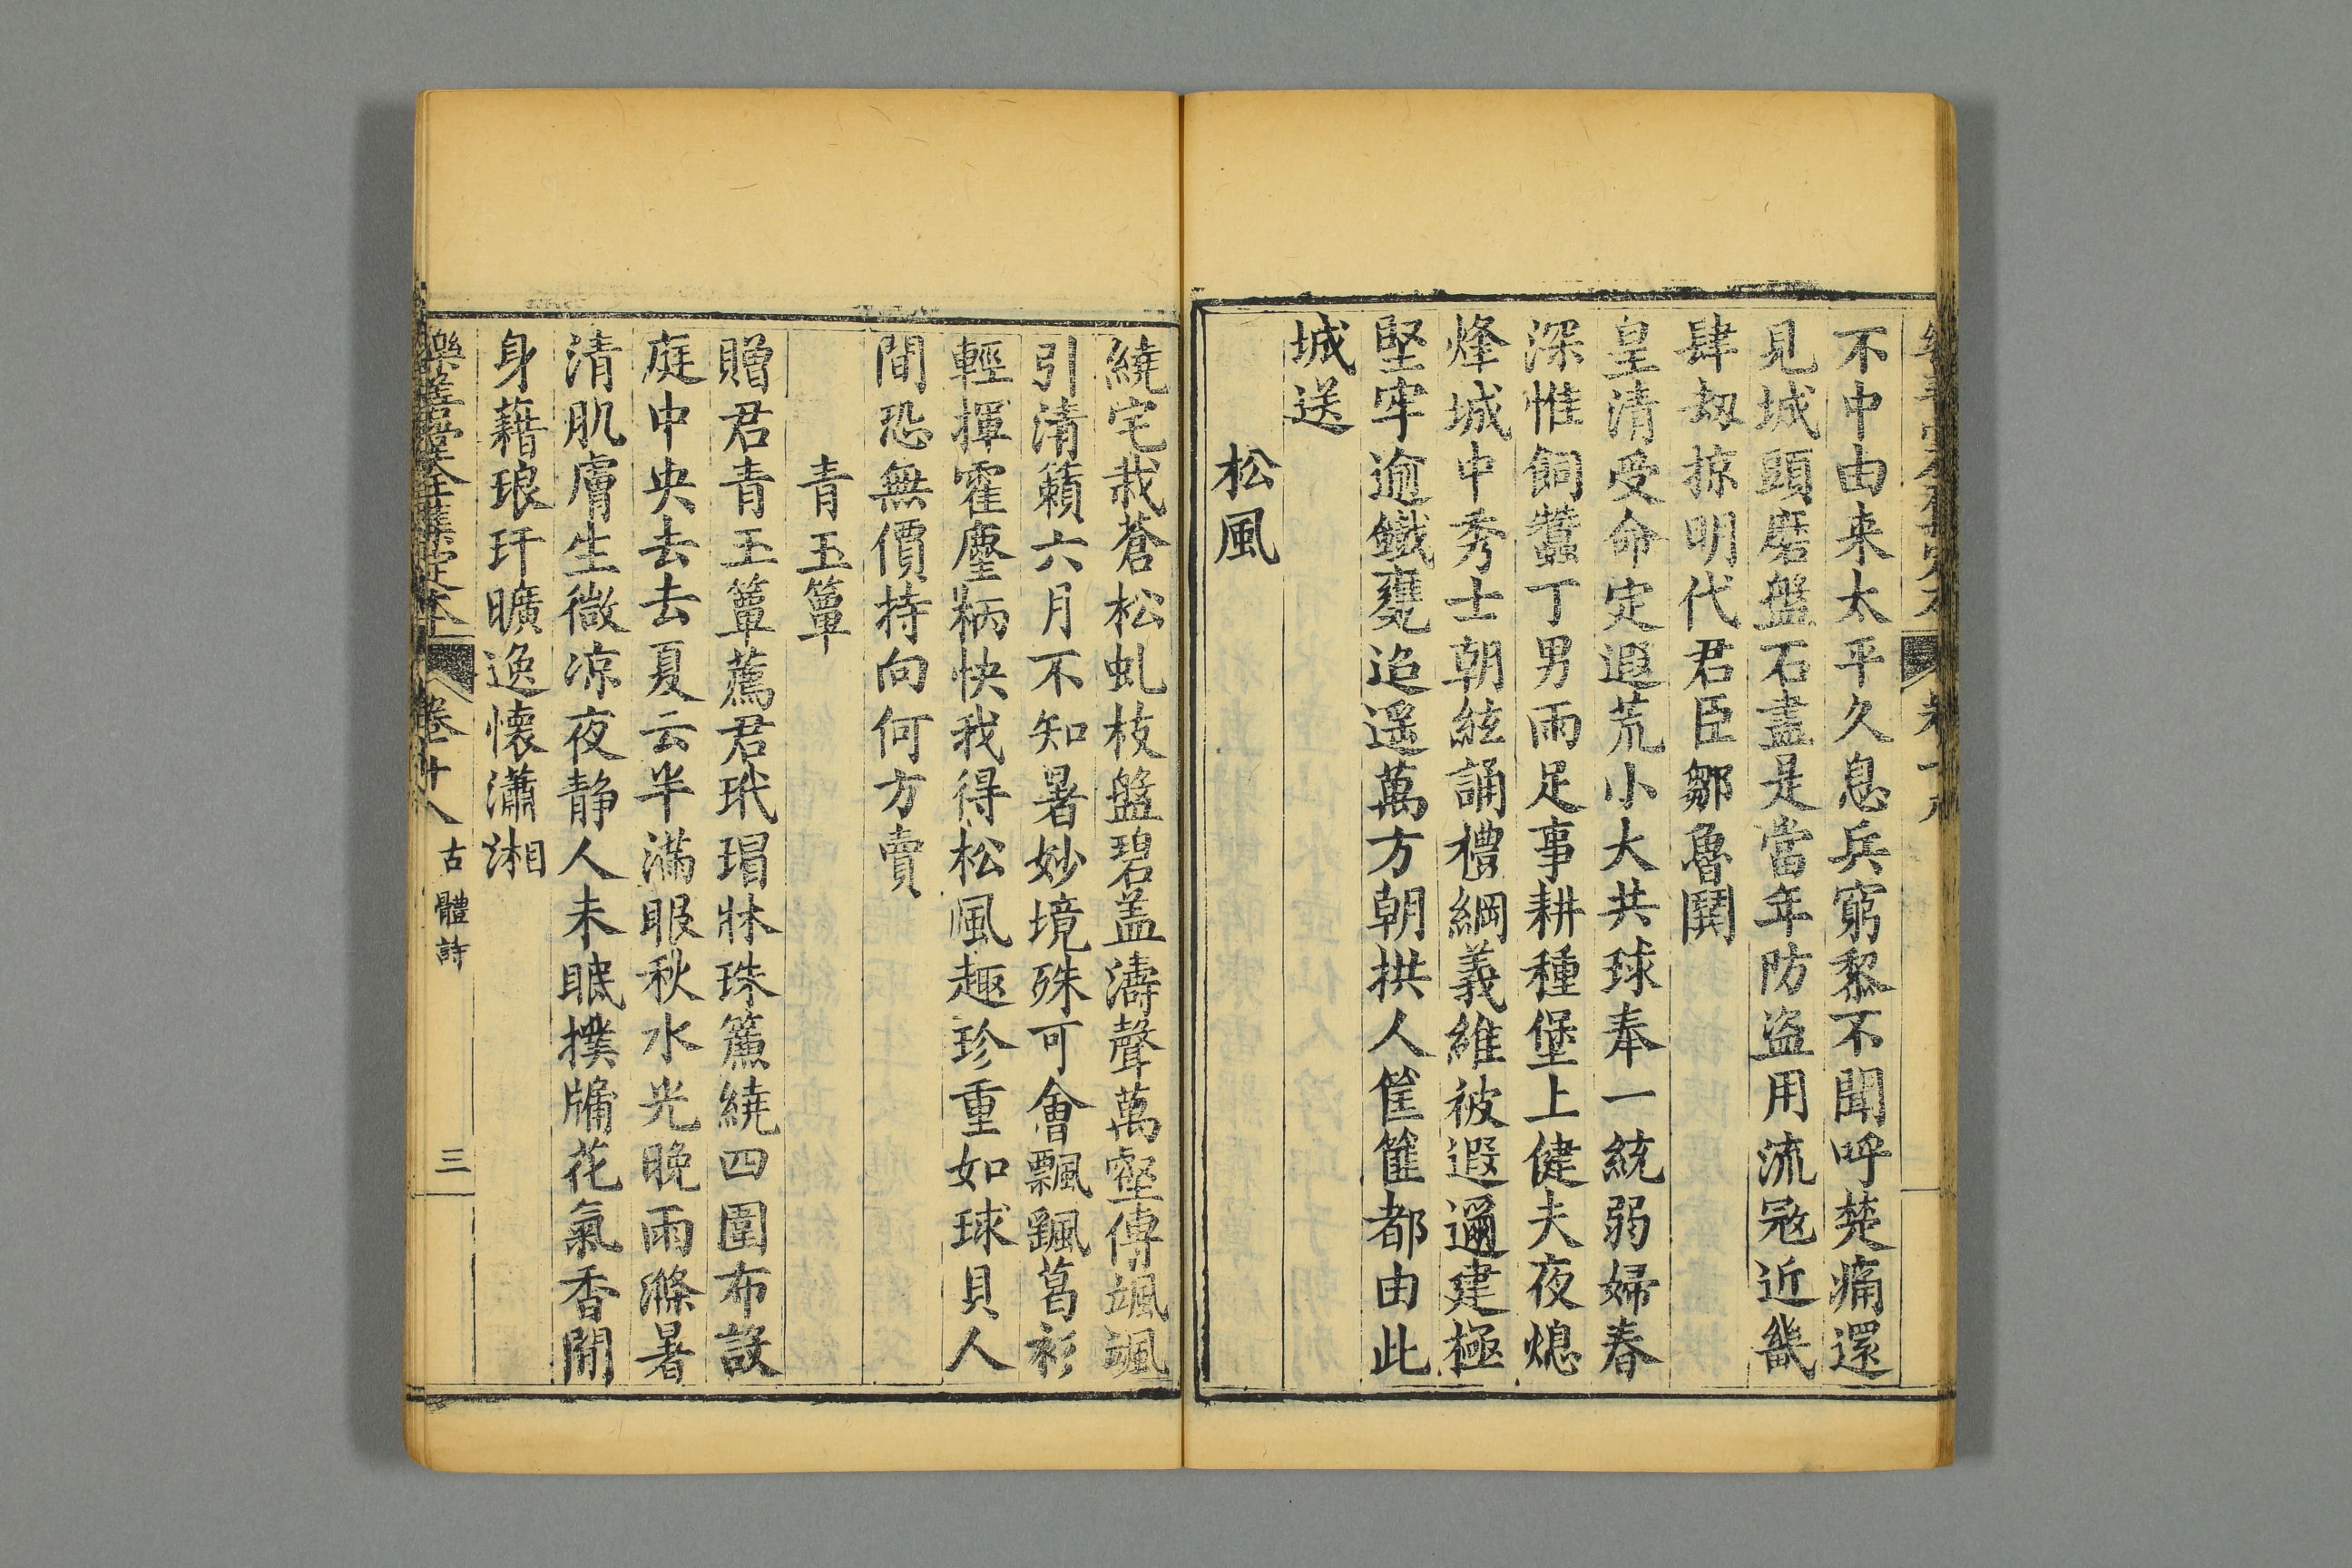 不中由来太平久息兵窮黎不聞呼楚痛還
見城頭磨盤石盡是當年防盜用流冦近畿
肆刼掠明代君臣鄒魯鬨
皇清受命定遐荒小大共球奉一統弱婦春
深惟飼蠶丁男雨足事耕種堡上健夫夜熄
烽城中秀士朝絃誦禮綱義維被遐邇建極
堅牢逾鐵甕迢遥萬方朝拱人筐篚都由此
城送
松風
繞宅栽蒼松虬枝盤碧盖濤聲萬壑傳颯颯
引清籟六月不知暑妙境殊可會飄飄葛衫
輕揮霍麈柄快我得松風趣珍重如球貝人
間恐無價持向何方賣
青玉簟
贈君青玉簟薦君玳瑁牀珠簾繞四圍布設
庭中央去去夏云半滿眼秋水光晚雨滌暑
清肌膚生微凉夜静人未眠撲牖花氣香閒
身藉琅玕曠逸懷瀟湘
樂善堂全集定本
卷十八
古體詩
三